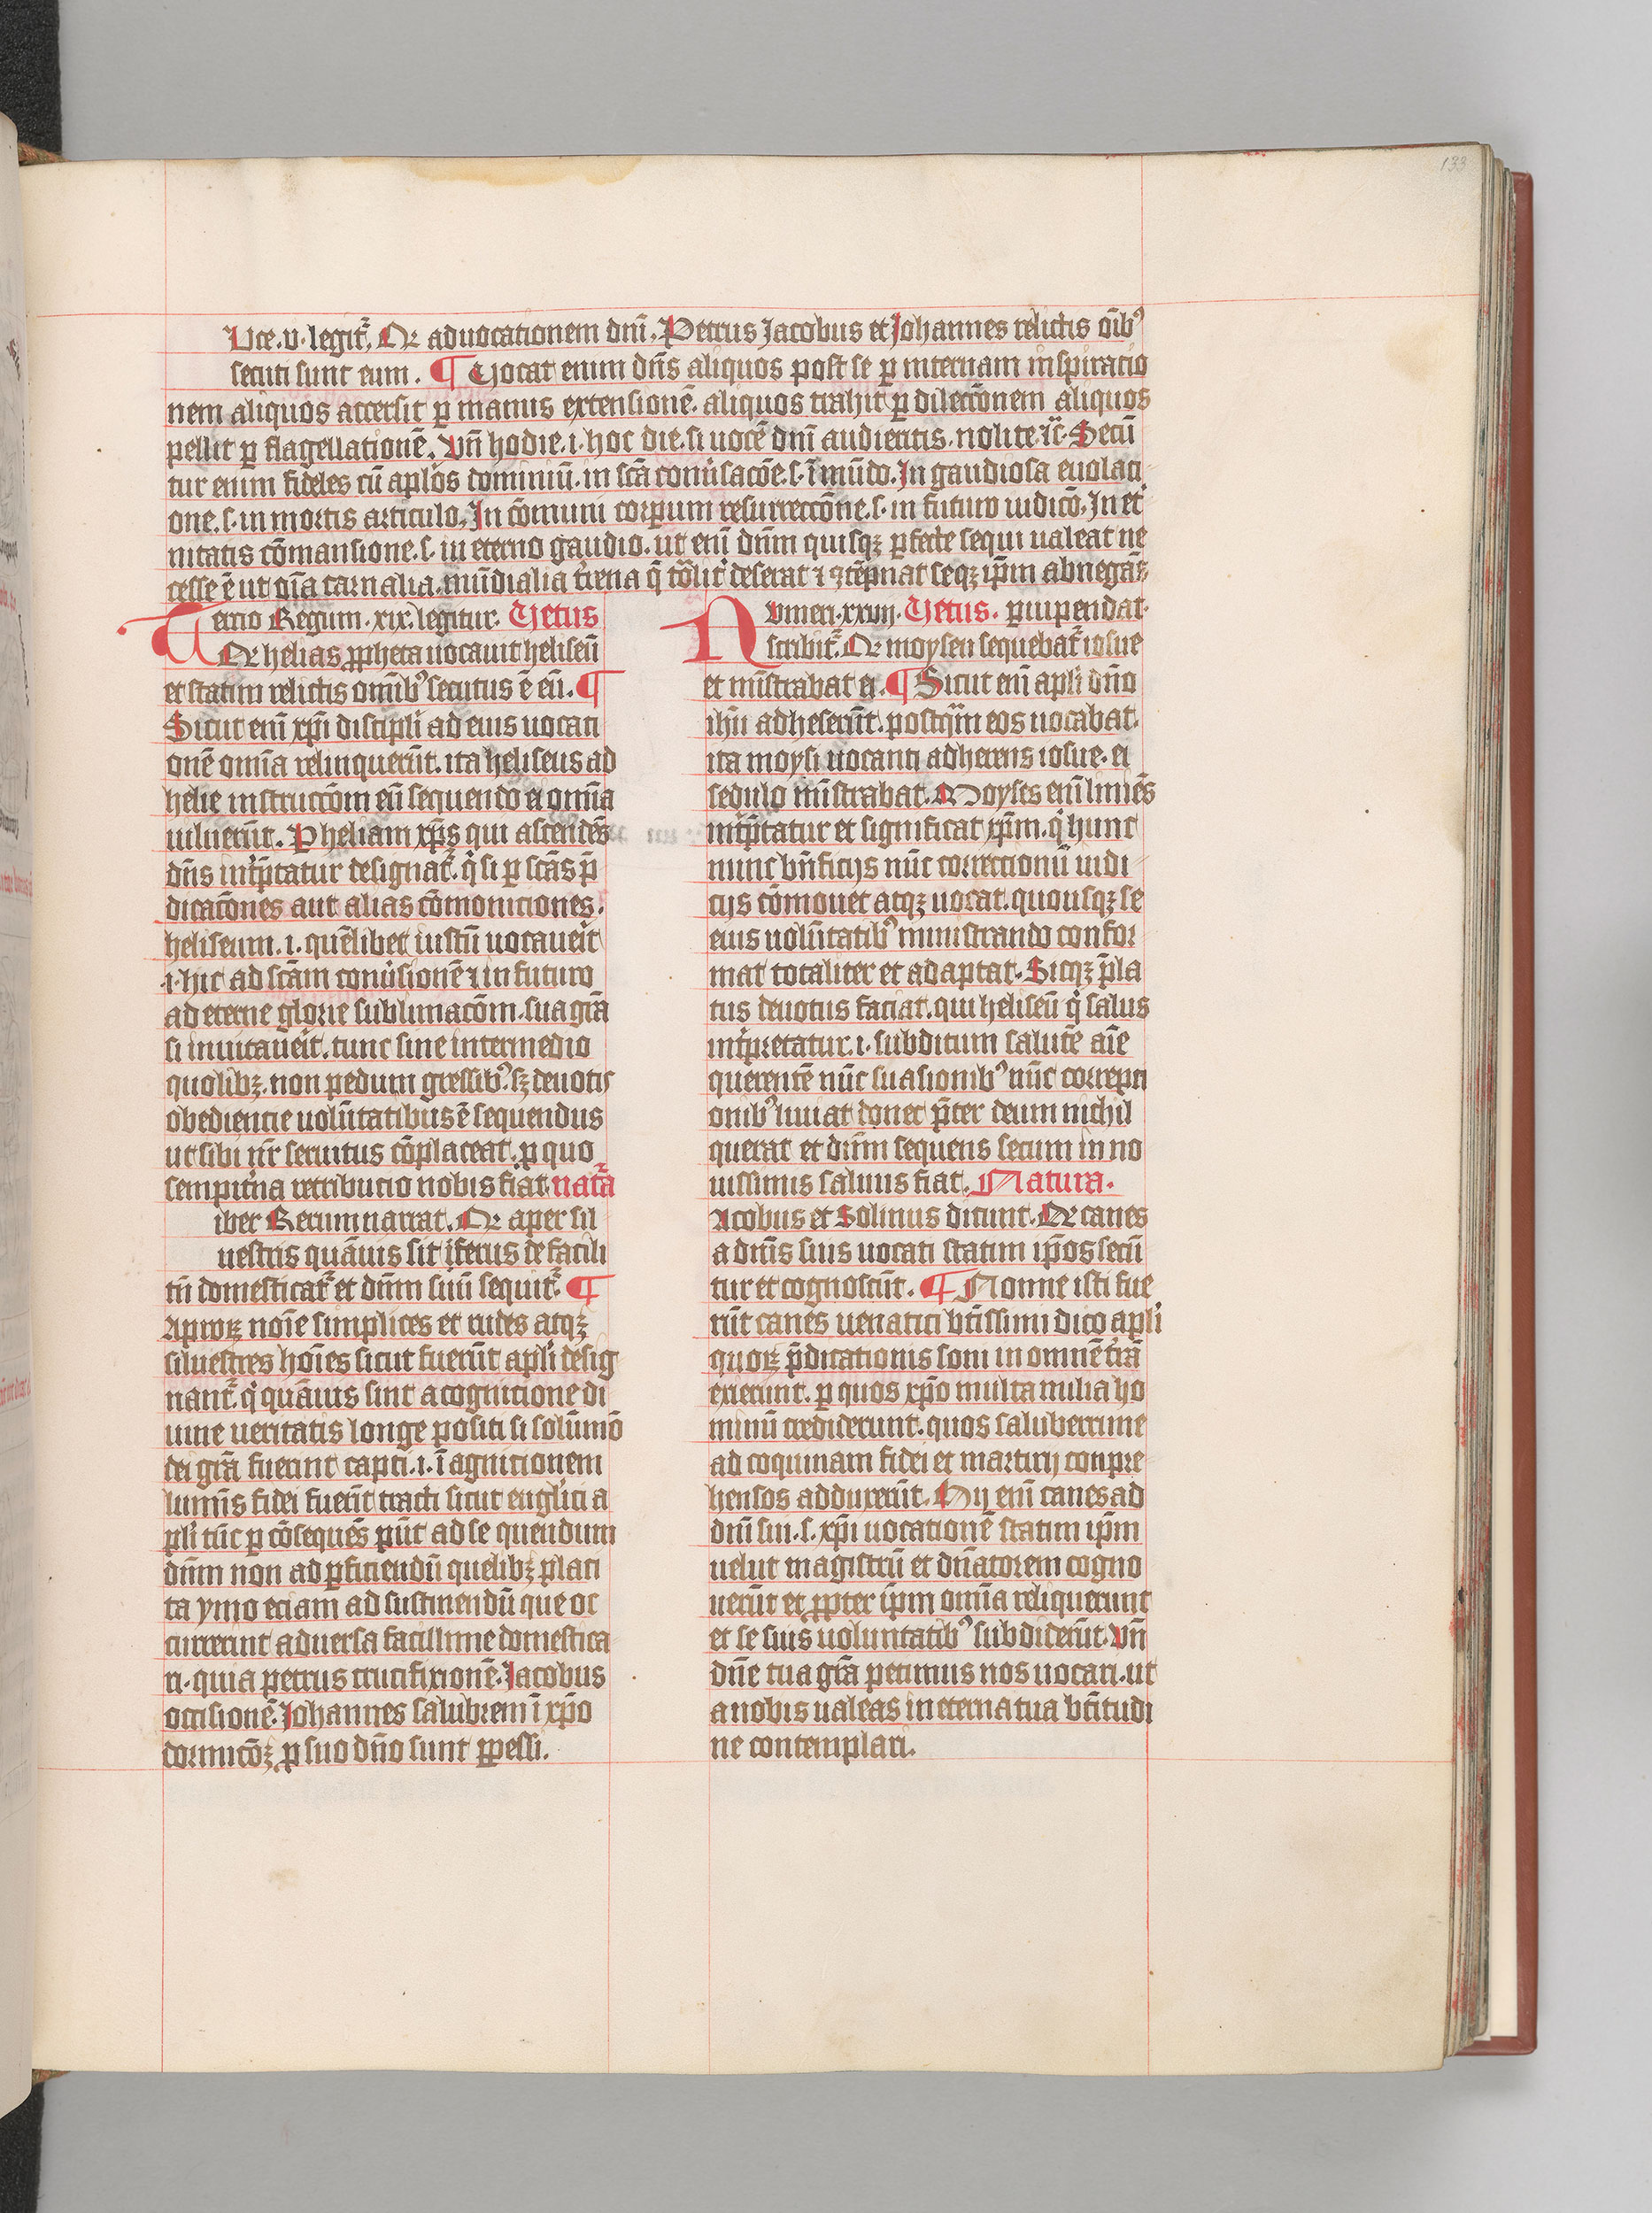 133
Uce .v. legit̄. Qr̄ ad vocationem dn̄i. Petrus Jacobus et Johannes relictis oīb⁹
secuti sunt eum. ¶ Vocat enim dn̄s aliquos post se ꝑ internam inspiratio
nem aliquos accersit ꝑ manus extensionē. aliquos trahit ꝑ dilectōnem aliquos
pellit ꝑ flagellationē. Vn̄ hodie .i. hoc die. si uocē dn̄i audieritis. nolite ⁊c̄. Secū
tur enim fideles cū aplōs dominiū. in scā conūsacōe .s. ī mūdo. In gaudiosa euolaci
one .s. in mortis articulo. In cōmuni corꝑum resurreccōne .s. in futuro iudicō. In et̄
nitatis cōmansione .s. in eterno gaudio. ut enī dn̄m quisqꝫ ꝑfecte sequi ualeat ne
cesse ē ut oīa carnalia. mūdialia t̄rena q̄ tōlit̄ deserat ⁊ ꝯtēpnat seqꝫ ip̄m abnegās
Tercio Regum .xix. legitur. Vetus
Qr̄ helias ꝓpheta uocauit heliseū
et statim relictis omīb⁹ secutus ē eū. ¶
Sicut enī xp̄i discipli ad eius uocati
onē omīa relinquerūt. ita heliseus ad
helie instructōm eū sequendo ei omīa
uiluerūt. Ꝑ heliam xp̄s qui ascendēs
dn̄s int̄p̄tatur designat̄. q̄ si ꝑ scās p̄
dicatōnes aut alias cōmonitiones.
heliseum .i. quēlibet iustū uocauerit
.i. hic ad scām conūsionē ⁊ in futuro
ad eterne glorie sublimacōm. sua grā
si inuitauerit. tunc sine intermedio
quolibꝫ. non pedum gressib⁹. sꝫ deuotis
obediencie uolūtatibus ē sequendus
ut sibi nr̄ seruitus cōplaceat. ꝑ quo
sempit̄na retribucio nobis fiat. natr̄a
iber Rerum narrat. Qr̄ aper sil
uestris quāuis sit īfectus de facili
tn̄ domesticat̄ et dn̄m suū sequit̄. ¶
Aproꝝ noīe simplices et rudes atqꝫ
siluestres hoīes sicut fuerūt apl̄i desig
nant̄. q̄ quāuis sint a cognicione di
uine ueritatis longe positi si solūmō
dei grā fuerint capti .i. ī agnicionem
lumīs fidei fuerīt tracti sicut eugl̄ici a
pl̄i tūc ꝑ cōsequēs p̄ūt ad se quendum
dn̄m non ad ꝑficiendū quelibꝫ placi
ta ymo eciam ad sustinendū que oc
currerint aduersa facillime domestica
ri. quia petrus crucifixionē. Jacobus
occisionē. Johannes salubrem ī xp̄o
dormicōꝫ ꝓ suo dn̄o sunt ꝑpessi.
Numeri .xxvij. Vetus. ꝑiupendat.
scribit̄. Qr̄ moysen sequebat̄ iosue
et mīstrabat ei. ¶ Sicut enī apl̄i dn̄o
ihū adheserūt. postqm̄ eos uocabat.
ita moysi uocanti adherens iosue. ei
sedulo mīstrabat. Moyses enī liniēs
int̄p̄tatur et significat xp̄m. q̄ hunc
nunc bn̄ficijs nūc correctionū iudi
cijs cōmouet atqꝫ uocat. quousqꝫ se
eius uolūtatib⁹ ministrando confor
mat totaliter et adaptat. Sicqꝫ p̄la
tus deuotus faciat. qui heliseū q̄ salus
int̄pretatur .i. subditum salutē aīe
querentē nūc suasionib⁹ nūc correpti
onib⁹ iuuat donec p̄ter deum nichil
querat et dn̄m sequens secum in no
uissimis saluus fiat. Natura.
Acobus et Solinus dicunt. Qr̄ canes
a dn̄is suis uocati statim ip̄os secū
tur et cognoscūt. ¶ Nonne isti fue
rūt canes uenatici bt̄issimi dico apl̄i
quoꝝ p̄dicationis soni in omnē t̄rā
exierunt. ꝑ quos xp̄o multa milia ho
minū crediderunt. quos saluberrime
ad coquinam fidei et martirij conpre
hensos adduxerūt. Hij enī canes ad
dn̄i sui .s. xp̄i uocationē statim ip̄m
uelut magistrū et dn̄atorem cogno
uerūt et ꝓpter ip̄m omīa reliquerunt
et se suis uoluntatib⁹ subdiderūt. Vn̄
dn̄e tua grā petimus nos uocari. ut
a nobis ualeas in eterna tua bt̄itudi
ne contemplari.